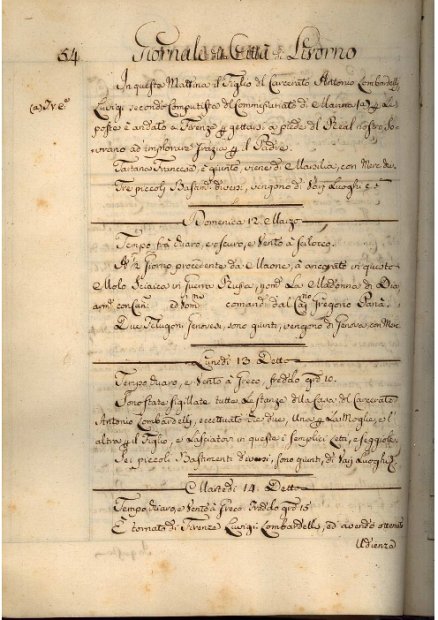 54 Giornale della Città di Livorno
In questa Mattina il Figlio del Carcerato Antonio Lombardelli
Luigi secondo Computista del Commissariato di Marina
poste è andato a Firenze gettarsi a piedi del Real nostro So-
vrano ad implorare Grazia il Padre.
Tartana Francesa è giunta, viene di Marsilia, con Merc
Tre piccoli Bastim diversi, vengono di Varj Luoghi
Domenica 12. Marzo
Tempo frà chiaro, e oscuro, e Vento à scilocco.
Giorno procedente da Maone, à ancorato in questo
Molo Sciaica in Guerra Russa, La Madonna di
con comand dal Gregorio
Due Feluconi Genovesi, sono giunti, vengono di Genova, con Merc
Lunedì 13. Detto
Tempo chiaro, e Vento à Greco, freddo 10.
Sono state sigillate tutte le stanze della Casa del Carcerato
Antonio Lombardelli, eccettuate due, Una La Moglie, e l'
altra il Figlio, e lasciatovi in queste i semplici Letti, e seggiole.
Sei piccoli Bastimenti diversi, sono giunti, di Varj Luoghi
Martedì 14. Detto
Tempo chiaro, e Vento à Greco freddo 15
È tornato di Firenze Luigi Lombardelli, ed avendo ottenuto
Udienza